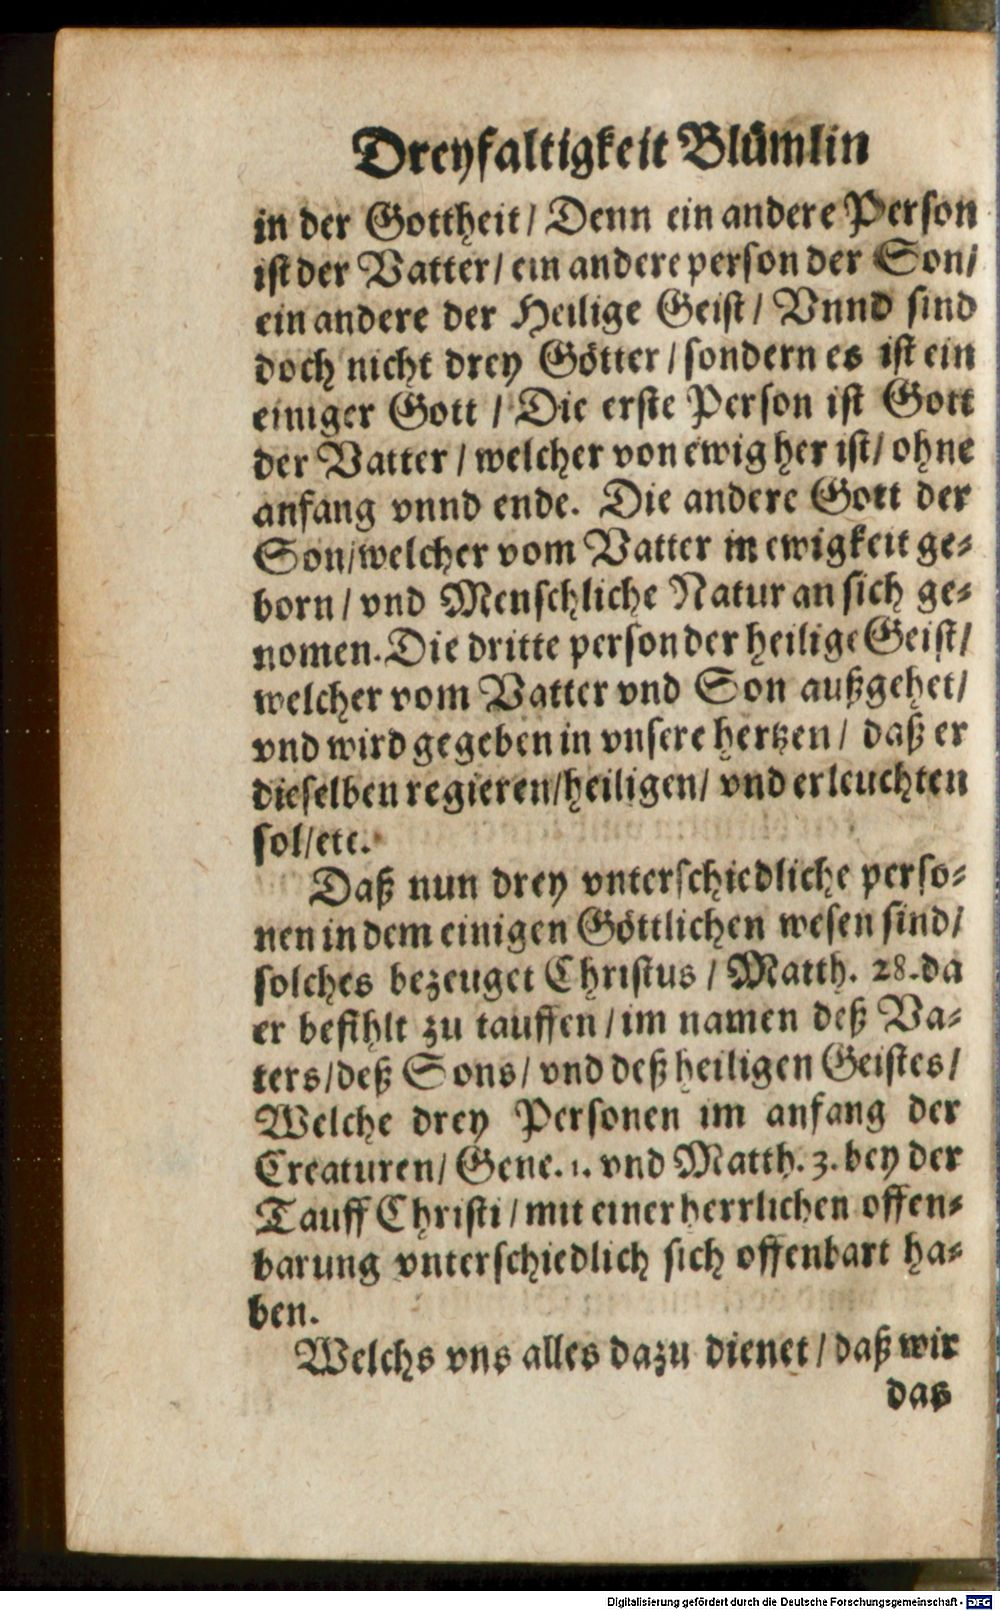 Dreyfaltigkeit Blümlin
in der Gottheit/ Denn ein andere Person
ist der Vatter/ ein andere person der Son/
ein andere der Heilige Geist/ Vnnd sind
doch nicht drey Götter/ sondern es ist ein
einiger Gott/ Die erste Person ist Gott
der Vatter/ welcher von ewig her ist/ ohne
anfang vnnd ende. Die andere Gott der
Son/welcher vom Vatter in ewigkeit ge-
born/ vnd Menschliche Natur an sich ge-
nomen. Die dritte person der heilige Geist/
welcher vom Vatter vnd Son außgehet/
vnd wird gegeben in vnsere hertzen/ daß er
dieselben regieren/heiligen/ vnd erleuchten
sol/etc.
Daß nun drey vnterschiedliche perso-
nen in dem einigen Göttlichen wesen sind/
solches bezeuget Christus/ Matth. 28. da
er befihlt zu tauffen/ im namen deß Va-
ters/deß Sons/ vnd deß heiligen Geistes/
Welche drey Personen im anfang der
Creaturen/ Gene. 1. vnd Matth. 3. bey der
Tauff Christi/ mit einer herrlichen offen-
barung vnterschiedlich sich offenbart ha-
ben.
Welchs vns alles dazu dienet/ daß wir
das
Digitalisierung gefördert durch die Deutsche Forschungsgemeinschaft - DFG